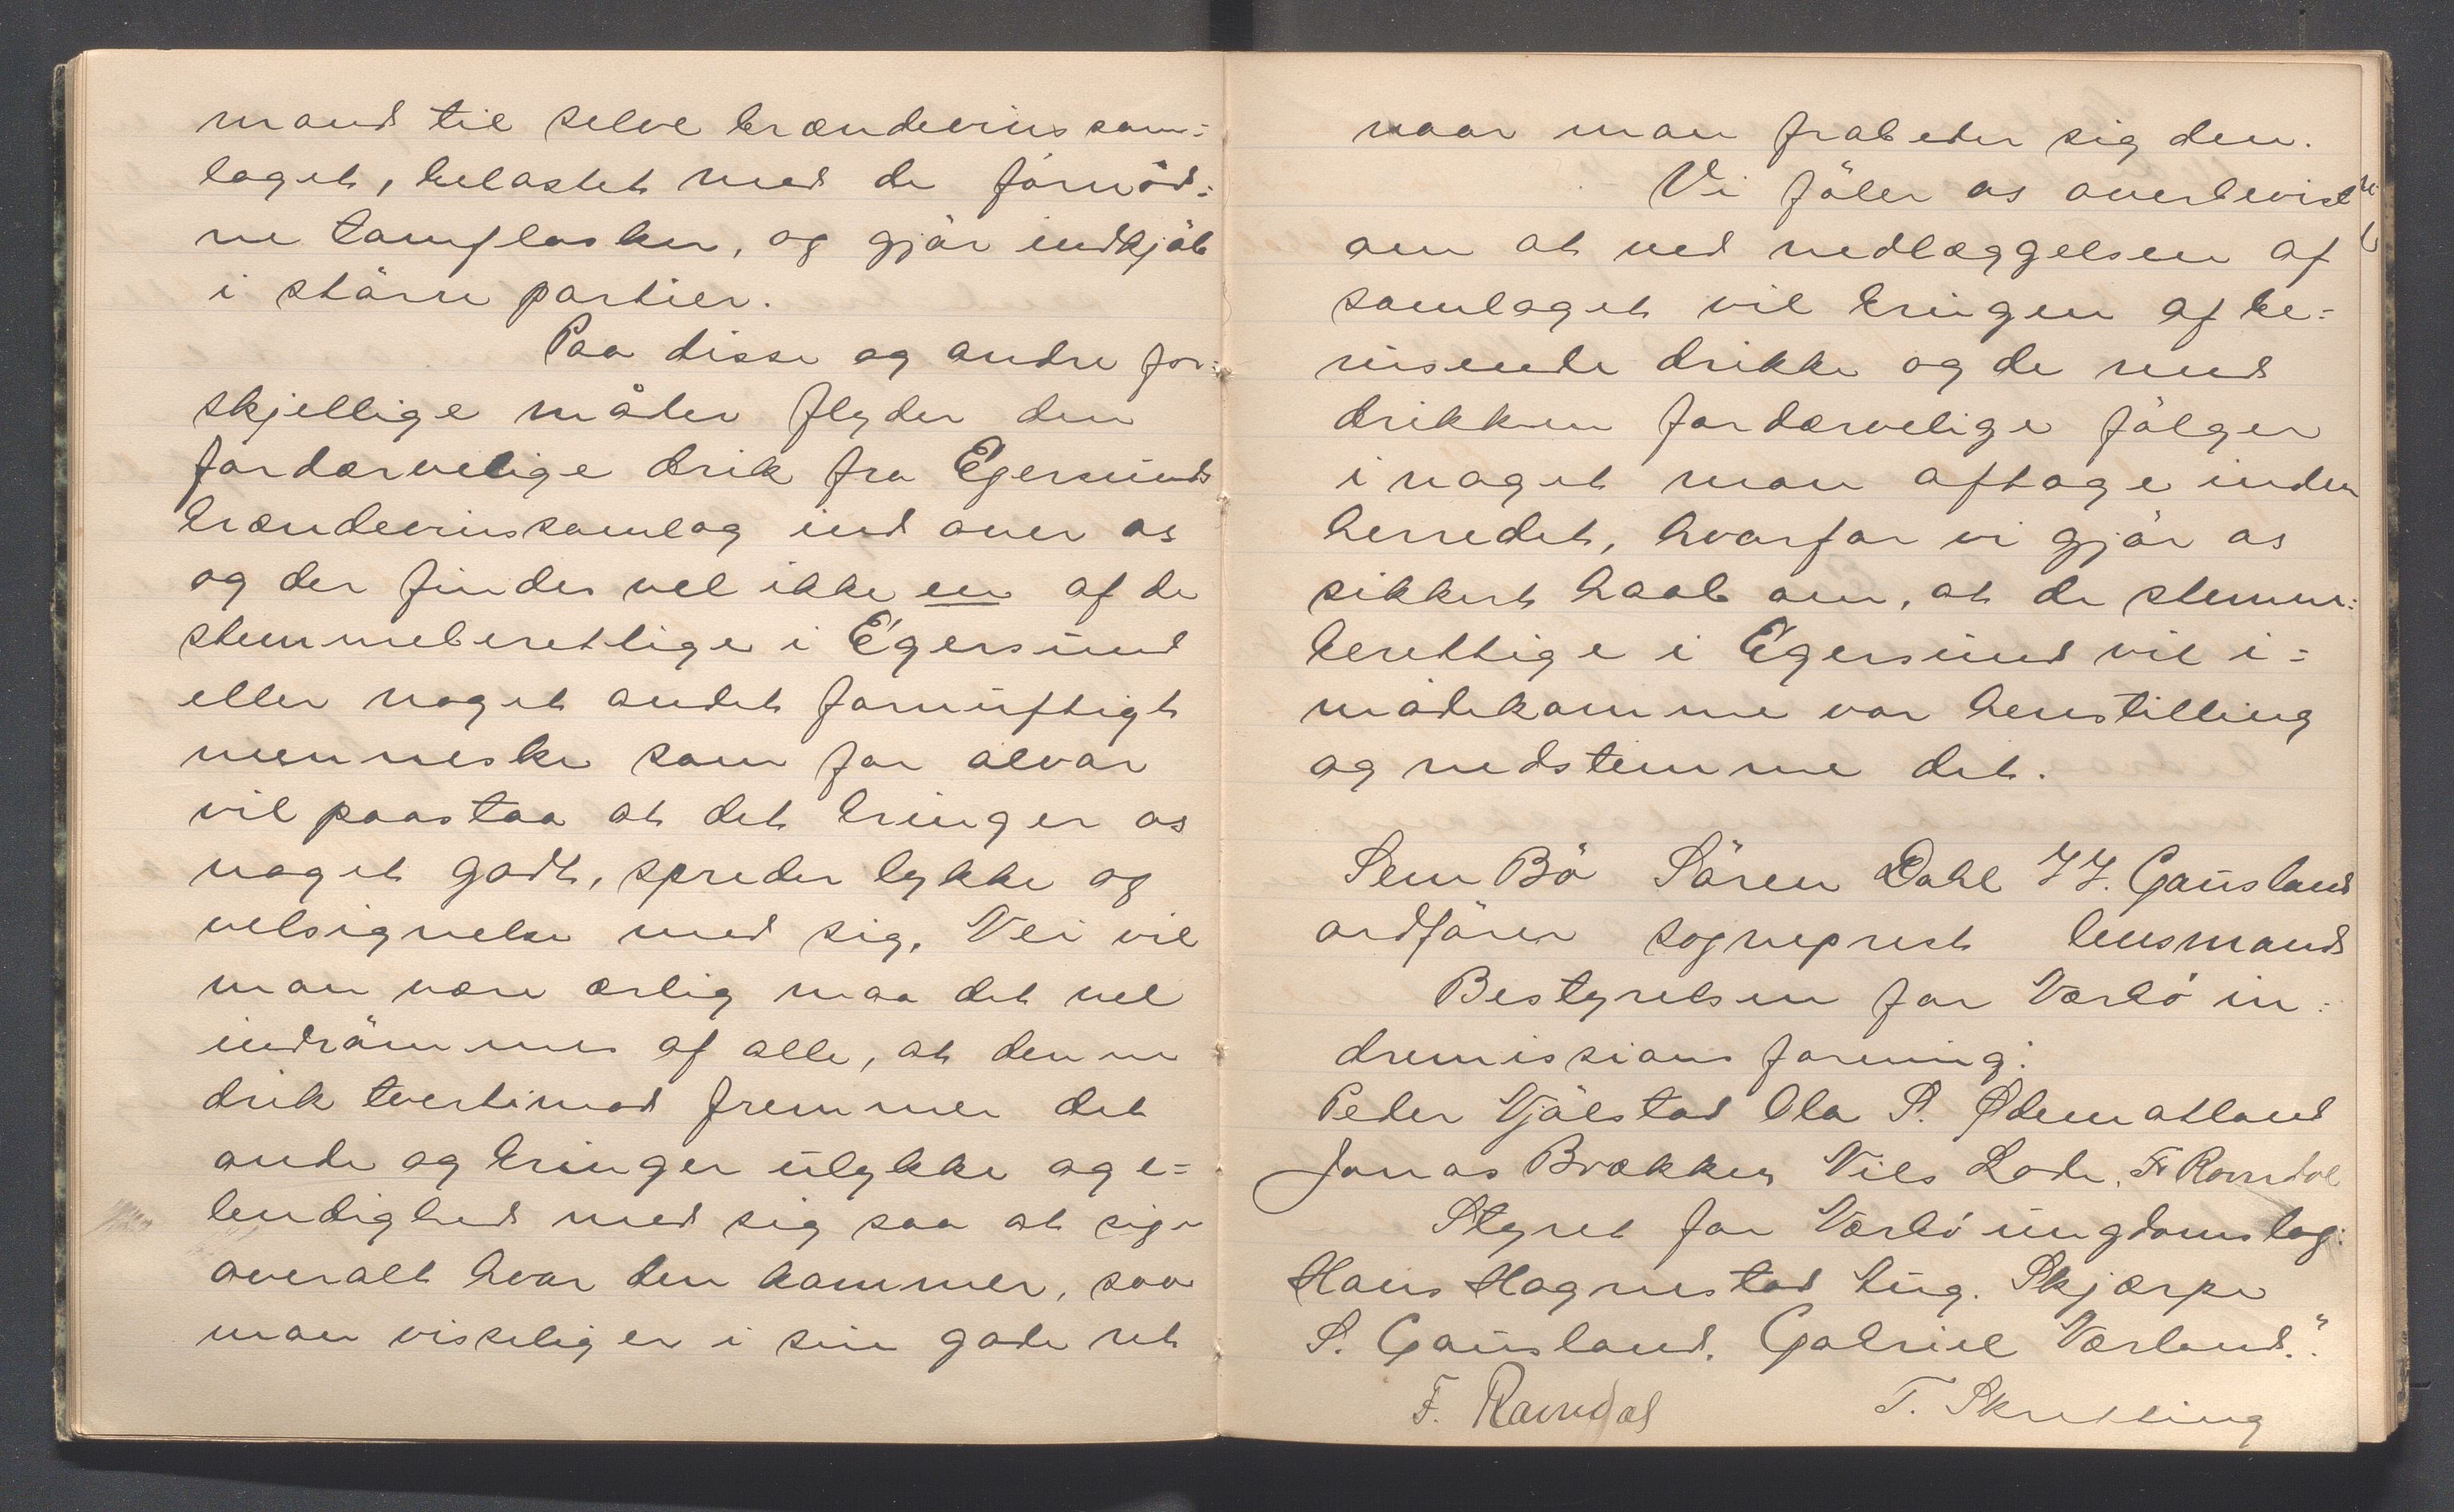 mand til selve brændevinssam=
laget, belastet med de fornöd=
ne tomflasker, og gjör indkjöb
i större partier.
Paa disse og andre for=
skjellige måder flyder den
fordærvelige drik fra Egersunds
brændevinssamlag ind over os
og der findes vel ikke en af de
stemmeberettige i Egersund
eller noget andet fornuftigt
menneske som for alvor
vil paastaa at det bringer os
noget godt, spreder lykke og
velsignelse med sig. Nei vil
man være ærlig maa det vel
indrömmes af alle, at denne
drik tvertimod fremmer det
onde og bringer ulykke og e=
lendighed med sig saa at sige
overalt hvor den kommer, saa
man visselig er i sin gode ret
naar man frabeder sig den.
Vi föler os overbevist
om at ved nedlæggelsen af
samlaget vil bringen af be=
rusende drikke og de med
drikken fordærvelige fölger
i noget mon aftage inden
herredet, hvorfor vi gjör os
sikkert haab om, at de stemme=
berettige i Egersund vil i=
mödekomme vor henstilling
og nedstemme det.
Sem Bö Sören Dahl J J. Gausland
ordförer sogneprest lensmand
Bestyrelsen for Varbö in=
dremissions forening:
Peder Mjölstad Ola S. Ødemotland
Jonas Brækken Nils Lode. Fr Ravndal
Styret for Varbö ungdomslag:
Hans Hognestad Ing. Skjærpe
S. Gausland. Gabriel Varland."
F. Ravndal T. Skretting